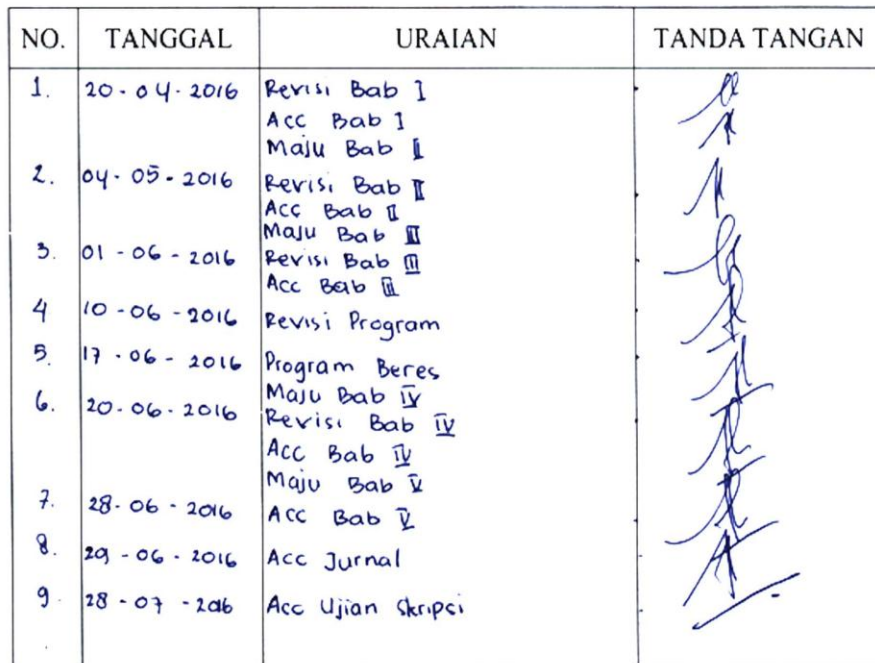 NO. TANGGAL URAIAN TANDA TANGAN
1. 20-04-2016 Revisi Bab I
Acc Bab I
Maju Bab II
2. 04-05-2016 Revisi Bab II
Acc Bab II
Maju Bab III
3. 01-06-2016 Revisi Bab III
Acc Bab III
4 10-06-2016 Revisi Program
5. 17-06-2016 Program Beres
Maju Bab IV
6. 20-06-2016 Revisi Bab IV
Acc Bab IV
Maju Bab V
7. 28-06-2016 Acc Bab V
8. 29-06-2016 Acc Jurnal
9. 28-07-2016 Acc Ujian Skripsi